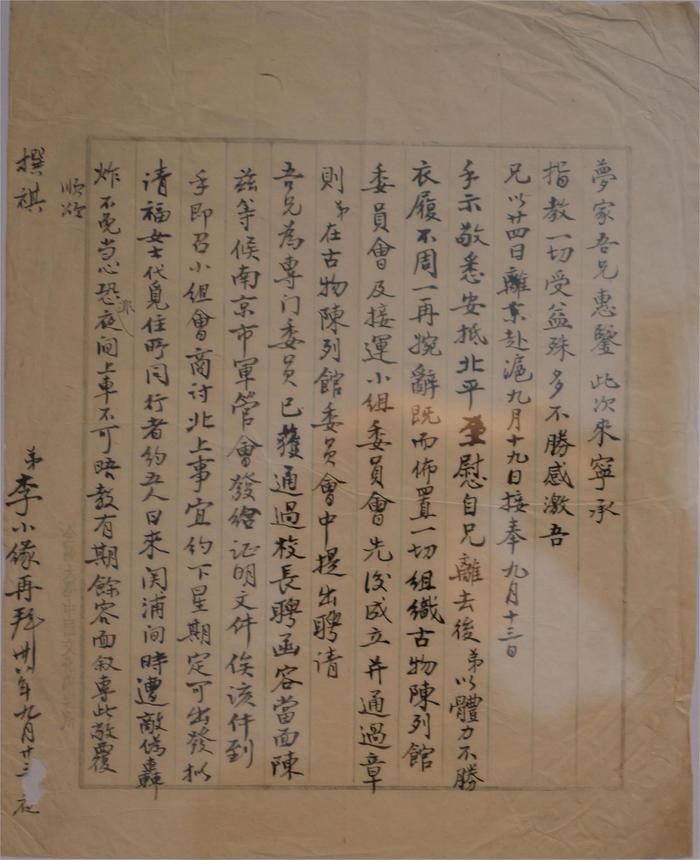 夢家吾兄惠鑒此次來寧承
指教一切受益殊多不勝感激吾
兄以廿四日離京赴滬九月十九日接奉九月十三日
手示敬悉安抵北平至慰自兄離去後弟以體力不勝
衣履不周一再婉辭既而佈置一切組織古物陳列館
委員會及接運小組委員會先後成立并通過章
則弟在古物陳列館委員會中提出聘請
吾兄為專门委員已獲通過校長聘函容當面陳
茲等候南京市軍管會發給证明文件俟該件到
手即召小組會商討北上事宜約下星期定可出發拟
請福女士代覓住所同行者約五人日來関浦间時遭敵偽轟
炸不免当心恐夜间上車不可晤教有期餘容面敘專此敬覆
順頌
撰祺
弟李小緣再拜卅八年九月廿三夜